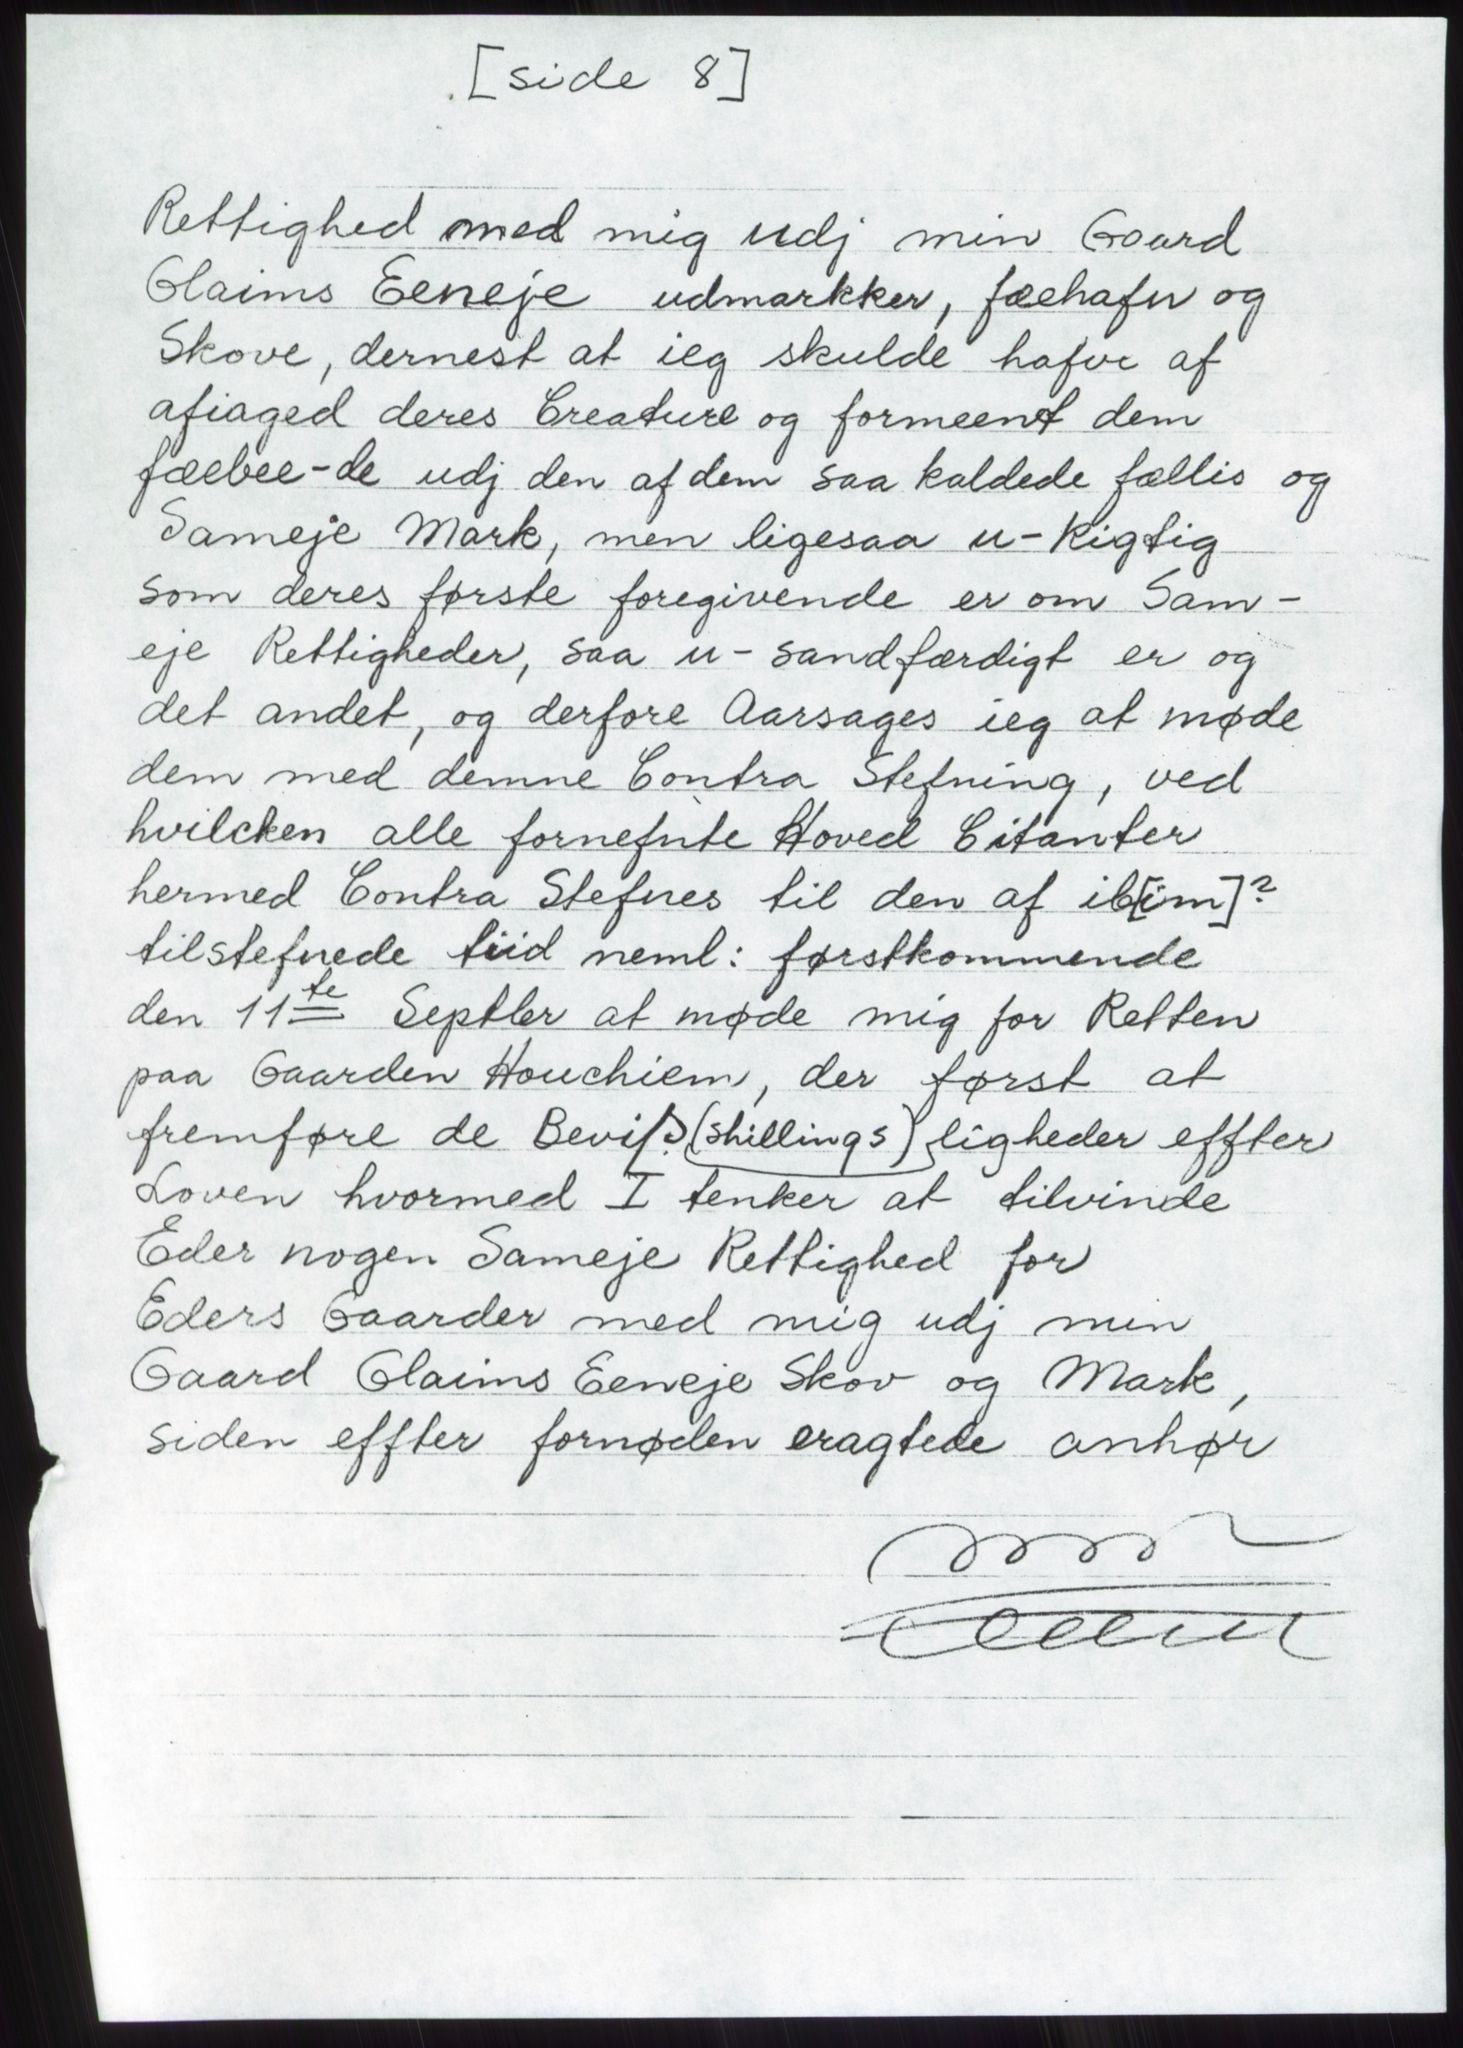 [side 8]
Rettighed med mig udj min Gaard
Glaims Eeneje udmarkker, fæehafn og
Skove, dernest at ieg skulde hafve af
afiaged deres Creature og formeent dem
fæebee-de udj den af dem saa kaldede fællis og
Sameje Mark, men ligesaa u-Rigtig
som deres første foregivende er om Sam-
eje Rettigheder, saa u-sandfærdigt er og
det andet, og derfore Aarsages ieg at møde
dem med demne Contra Stefning, ved
hvilcken alle fornefnte Hoved Citanter
hermed Contra Stefnes til den af ib[im]?
tilstefnede tiid neml: førstkommende
den 11te Septbr at møde mig for Retten
paa Gaarden Houchiem, der først at
fremføre de Beviß? (shillings) ligheder effter
Loven hvormed I tenker at tilvinde
Eder nogen Sameje Rettighed for
Eders Gaarder med mig udj min
Gaard Glaims Eeneje Skov og Mark,
siden effter fornøden eragtede anhør